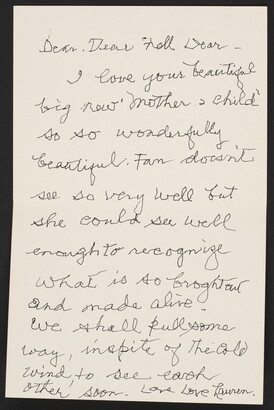 Dear, Dear Nell Door –
I love your beautiful
big new 'Mother & child'
so so wonderfully
beautiful. Fam doesn't
see so very well but
she could see well
enought to recognize
what is so broght out
and made alive.
We shall pull some
way, inspite of the cold
wind to see each
other, soon. Love Love Lauren.